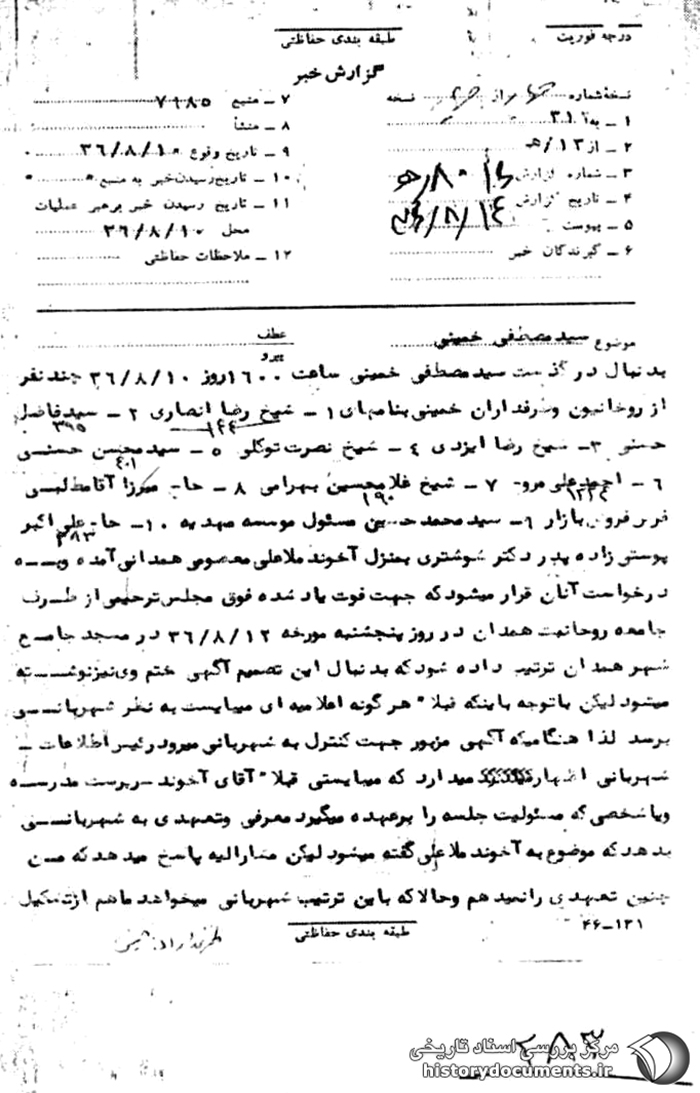 درجه فوریت
طبقه بندی حفاظتی
گزارش خبر
نسخهٔ شماره از نسخه
۱ ـ به ۳۱۲
۲ ـ از ۱۳/هـ
۳ ـ شماره گزارش
۴ ـ تاریخ گزارش ۳۶/۸/۱۴
۵ ـ پیوست
۶ ـ گیرندگان خبر
۷ ـ منبع ۷۹۸۵
۸ ـ منشأ
۹ ـ تاریخ وقوع ۳۶/۸/۱۰
۱۰ ـ تاریخ رسیدن خبر به منبع
۱۱ ـ تاریخ رسیدن خبر برهبر عملیات
محل ۳۶/۸/۱۰
۱۲ ـ ملاحظات حفاظتی
موضوع سید مصطفی خمینی
عطف
پیرو
بدنبال درگذشت سید مصطفی خمینی ساعت ۱۶۰۰ روز ۳۶/۸/۱۰ چند نفر
از روحانیون و طرفداران خمینی بنامهای ۱ ـ شیخ رضا انصاری ۲ ـ سید فاضل
۳۹۵
۱۴۴
حسنی ۳ ـ شیخ رضا ایزدی ۴ ـ شیخ نصرت توکلی ۵ ـ سید محسن حسنی
۴۰۱
۶ ـ احمد علی مروج ۷ ـ شیخ غلامحسین بهرامی ۸ ـ حاج میرزا آقا مطلبی
۱۹۰
۱۲۲۴
فرش فروش بازار ۹ ـ سید محمد حسین مسئول موسسه مهدیه ۱۰ ـ حاج علی اکبر
۳۸۳
پوستی زاده پدر دکتر شوشتری بمنزل آخوند ملاعلی معصومی همدانی آمده و به
درخواست آنان قرار میشود که جهت فوت یاد شده فوق مجلس ترحیمی از طرف
جامعه روحانیت همدان در روز پنجشنبه مورخه ۳۶/۸/۱۲ در مسجد جامع
شهر همدان ترتیب داده شود که بدنبال این تصمیم آگهی ختم وی نیز نوشته
میشود لیکن باتوجه باینکه قبلا" هر گونه اعلامیه ای میبایست به نظر شهربانی
برسد لذا هنگامیکه آگهی مزبور جهت کنترل به شهربانی میرود رئیس اطلاعات ـ
شهربانی اظهار میدارد که میبایستی قبلا" آقای آخوند سرپرست مدرسه
ویا شخصی که مسئولیت جلسه را برعهده میگیرد معرفی وتعهدی به شهربانی
بدهد که موضوع به آخوند ملاعلی گفته میشود لیکن مشارالیه پاسخ میدهد که من
چنین تعهدی را نمیدهم وحالا که باین ترتیب شهربانی میخواهد ما هم از تشکیل
۴۶-۱۳۱
طبقه بندی حفاظتی
۲۸۳
مرکز بررسی اسناد تاریخی
historydocuments.ir